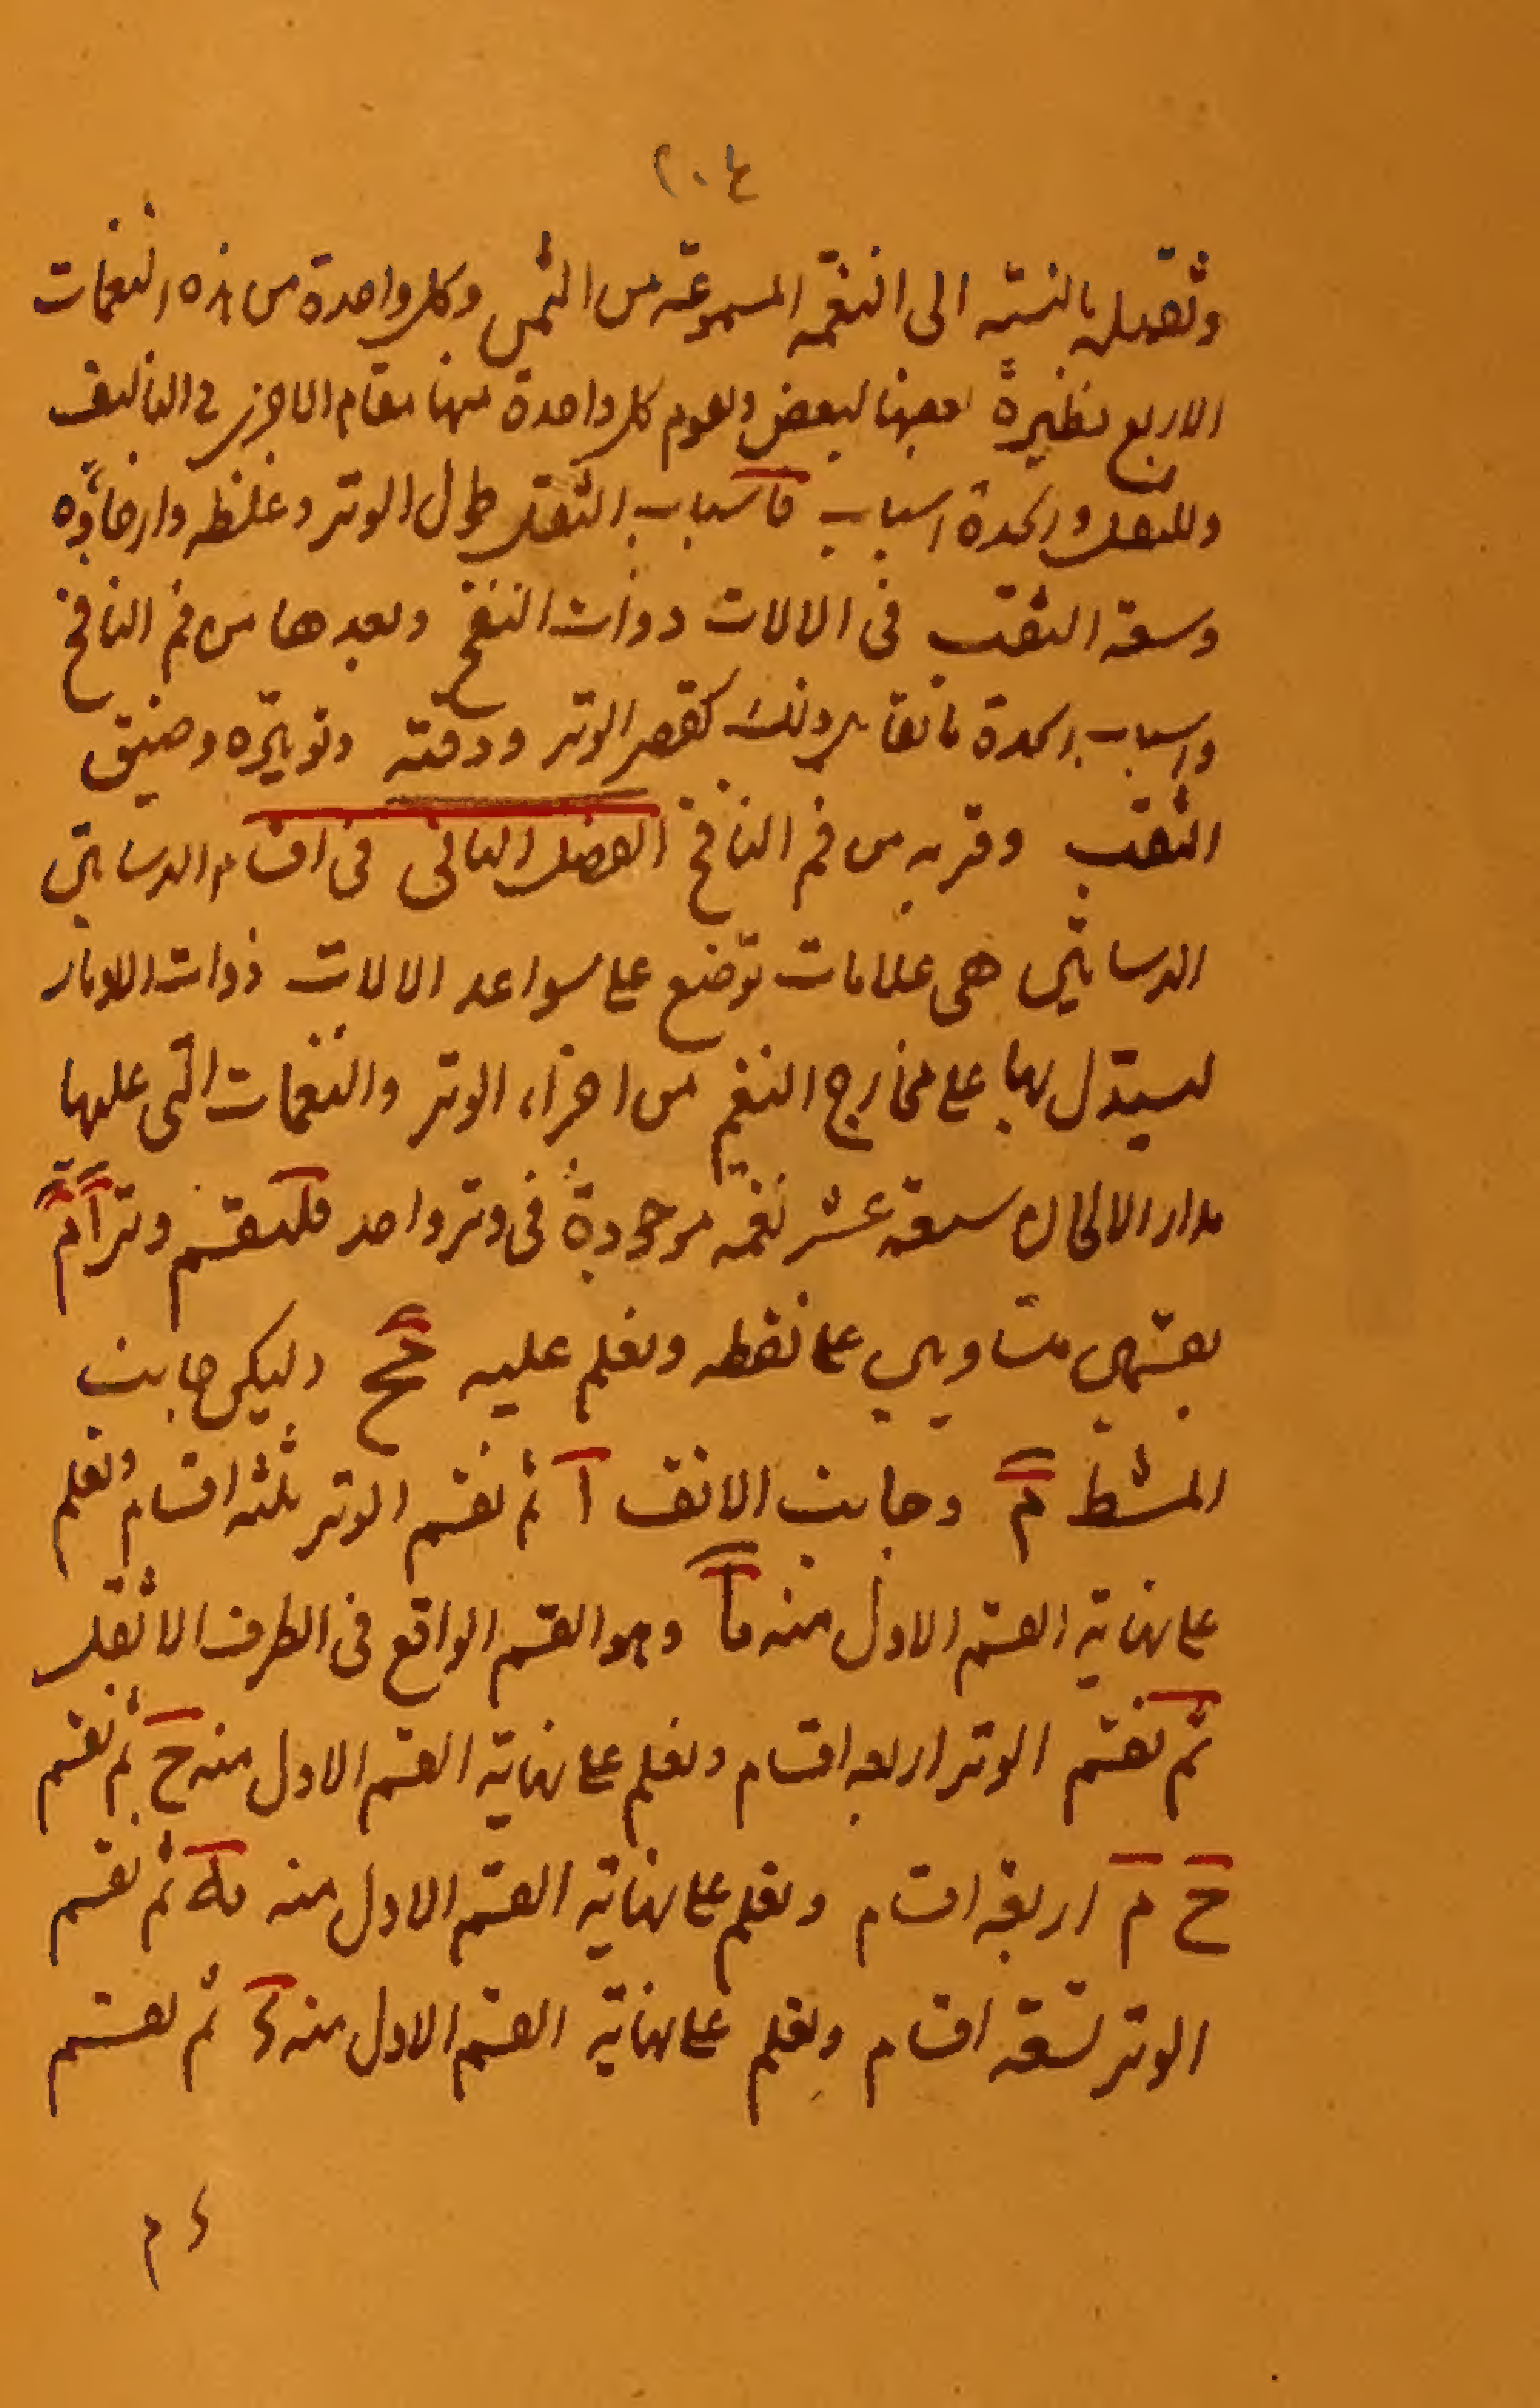 ٢٠٤
وثقيلة بالنسبة الى النغمة المسموعة من الثمن وكل واحدة من هذه النغمات
الاربع نظيرة بعضها لبعض وتقوم كل واحدة منها مقام الاخرى في التأليف
وللثقل والحدة اسباب فأسباب الثقل طول الوتر وغلظه وارخاؤه
وسعة الثقب فى الالات ذوات النفخ وبعدها من فم النافخ
واسباب الحدة ما تقابل ذلك كقصر الوتر ودقته وتوتيره وضيق
الثقب وقربه من فم النافخ الفصل الثانى فى اقسام الدساتين
الدساتين هى علامات توضع على سواعد الالات ذوات الاوتار
ليستدل بها على مخارج النغم من اجزاء الوتر والنغمات التى عليها
مدار الالحان سبعة عشر نغمة موجودة فى وتر واحد فلنقسم وتر آم
بقسمين متساويين على نقطة ونعلم عليه يح وليكن جانب
المشط م وجانب الانف ا ثم نقسم الوتر ثلثة اقسام ونعلم
على نهاية القسم الاول منه يا وهو القسم الواقع فى الطرف الاثقل
ثم نقسم الوتر اربعة اقسام ونعلم على نهاية القسم الاول منه ح ثم نقسم
ح م اربعة اقسام ونعلم على نهاية القسم الاول منه يه ثم نقسم
الوتر تسعة اقسام ونعلم على نهاية القسم الاول منه د ثم نقسم
د م